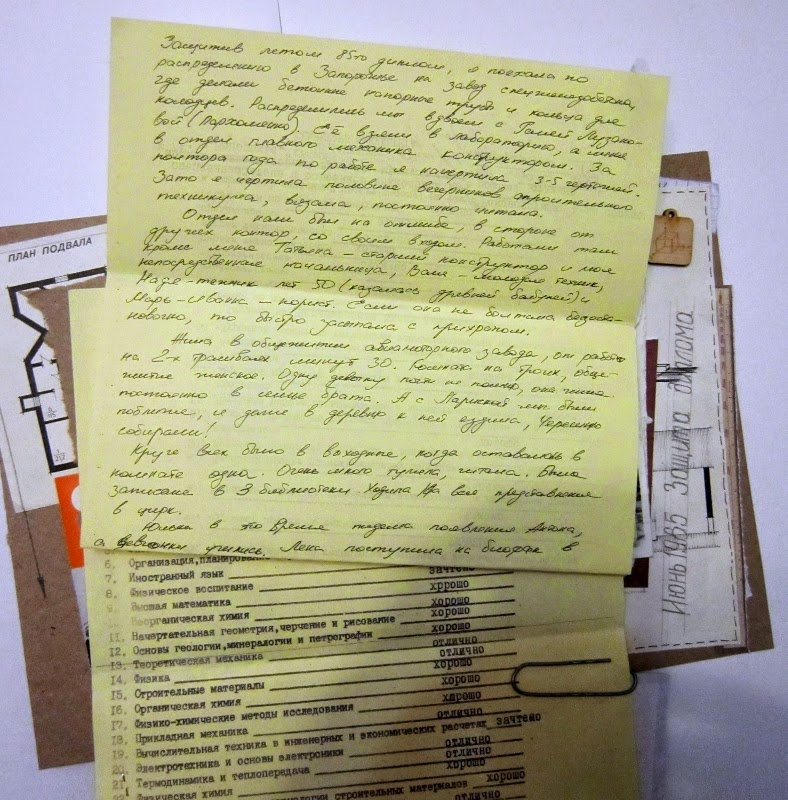 Защитив летом 85-го диплом, я поехала по
распределению в Запорожье на завод спецжелезобетона,
где делали бетонные напорные трубы и кольца для
колодцев. Распределились мы вдвоем с Галей Лузано-
вой (Пархоменко). Её взяли в лабораторию, а меня
в отдел главного механика конструктором. За
полтора года по работе я начертила 3-5 чертежей.
Зато я чертила половине вечерников строительного
техникума, вязала, постоянно читала.
Отдел наш был на отшибе, в стороне от
других контор, со своим входом. Работали там
кроме меня Татьяна - старший конструктор и моя
непосредственная начальница, Валя - молодая техник,
Надя - техник лет 50 (казалась древней бабулей) и
Марь-Иванна - юрист. Если она не болтала безоста-
новочно, то быстро засыпала с прихрапом.
Жила в общежитии авиамоторного завода, от работы
на 2-х трамваях минут 30. Комната на троих, обще-
житие женское. Одну девочку почти не помню, она жила
постоянно в семье брата. А с Лариской мы были
поближе, и даже в деревню к ней ездила, черешню
собирали!
Круче всех было в выходные, когда оставалась в
комнате одна. Очень много гуляла, читала. Была
записана в 3 библиотеки. Ходила на все представления
в цирк.
Юлька в это время ждала появления Антона,
а девчонки учились. Лена поступила на биофак в
6. Организация, планирование
7. Иностранный язык зачтено
8. Физическое воспитание хорошо
9. Высшая математика хорошо
10. Неорганическая химия хорошо
11. Начертательная геометрия, черчение и рисование хорошо
12. Основы геологии, минералогии и петрографии отлично
13. Теоретическая механика отлично
14. Физика хорошо
15. Строительные материалы хорошо
16. Органическая химия хорошо
17. Физико-химические методы исследования отлично
18. Прикладная механика
19. Вычислительная техника в инженерных и экономических расчетах зачтено
20. Электротехника и основы электроники отлично
21. Термодинамика и теплопередача отлично
Физическая химия хорошо
технологии строительных материалов хорошо
отлично
ПЛАН ПОДВАЛА
Июнь 1985 Защита диплома